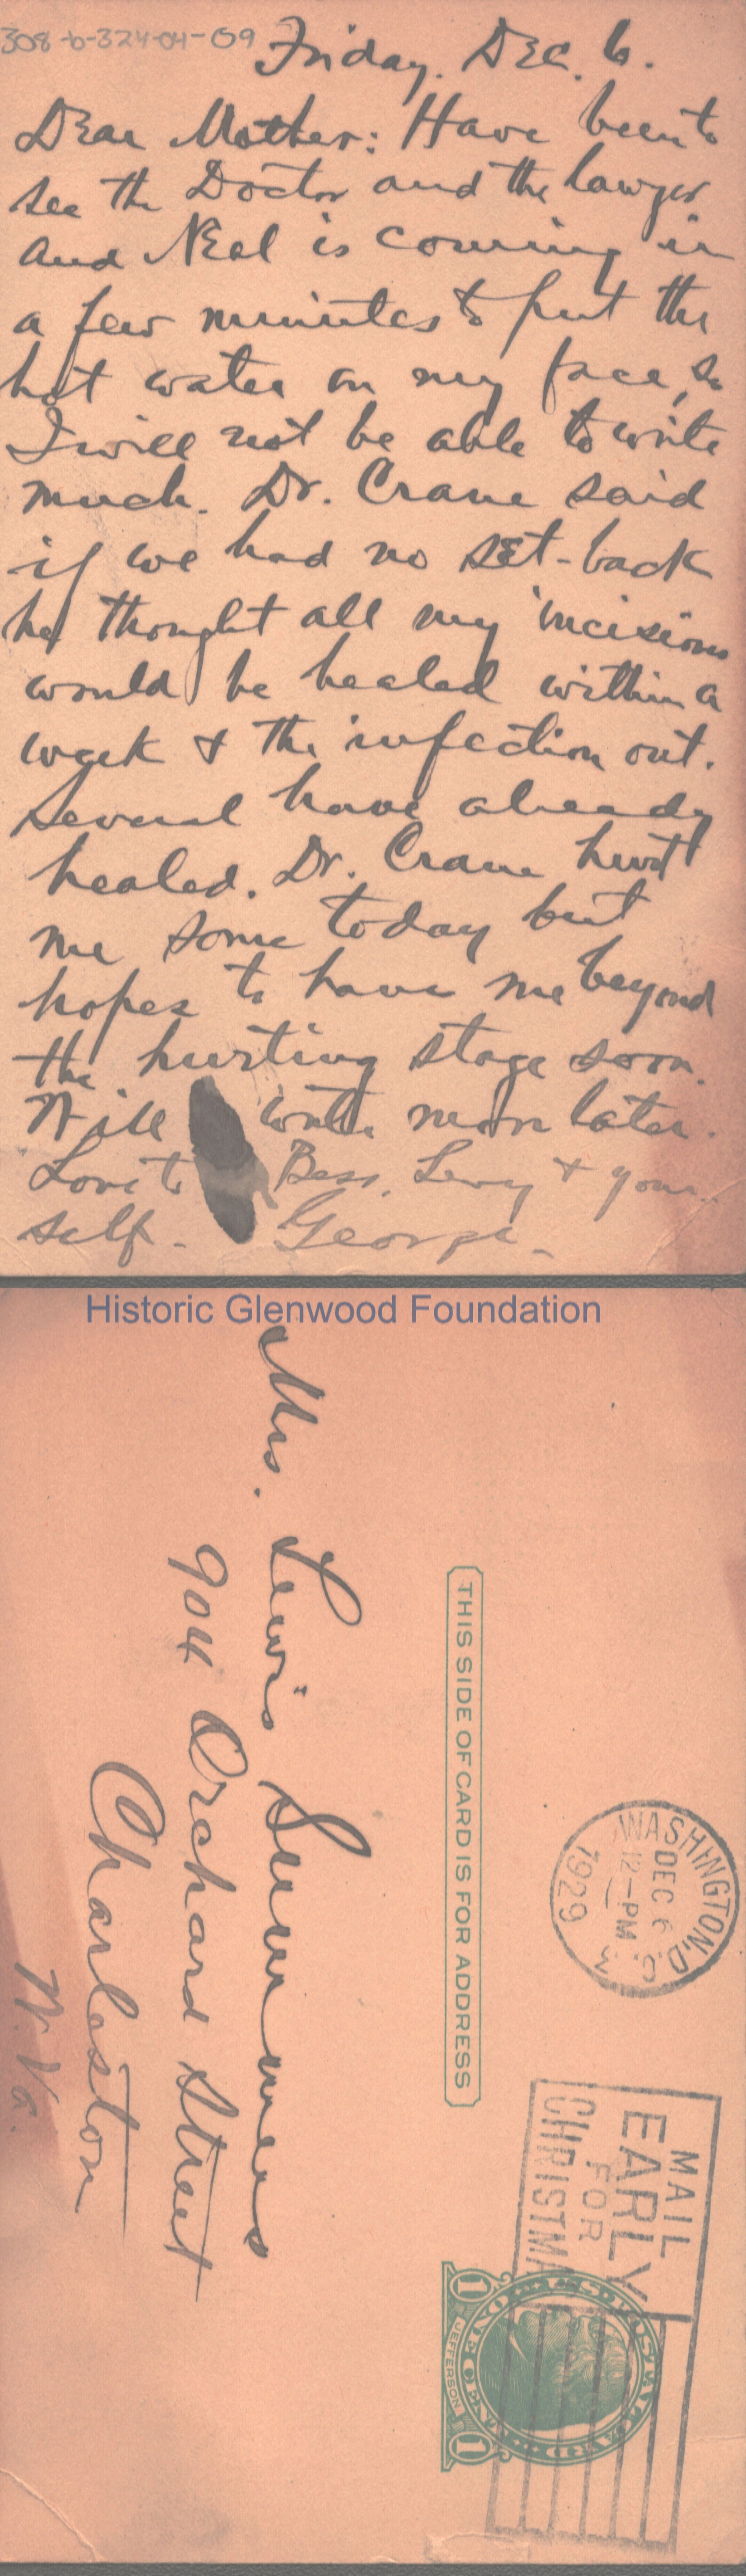 308-b-324-04-09
Friday. Dec. 6.
Dear Mother: Have been to
see the Doctor and the lawyer
and Neal is coming in
a few minutes to put the
hot water on my face, so
I will not be able to write
much. Dr. Crane said
if we had no set-back
he thought all my incisions
would be healed within a
week & the infection out.
Several have already
healed. Dr. Crane hurt
me some today but
hopes to have me beyond
the hurting stage soon.
Will write more later.
Love to Bess, Levy & your
self. George.
Historic Glenwood Foundation
Mrs. Lewis Summers
904 Orchard Street
Charleston
W. Va.
THIS SIDE OF CARD IS FOR ADDRESS
WASHINGTON, D.C.
DEC 6
12-PM
1929
3
MAIL
EARLY
FOR
CHRISTMA
U.S. POSTAL CARD
ONE CENT
1 JEFFERSON 1